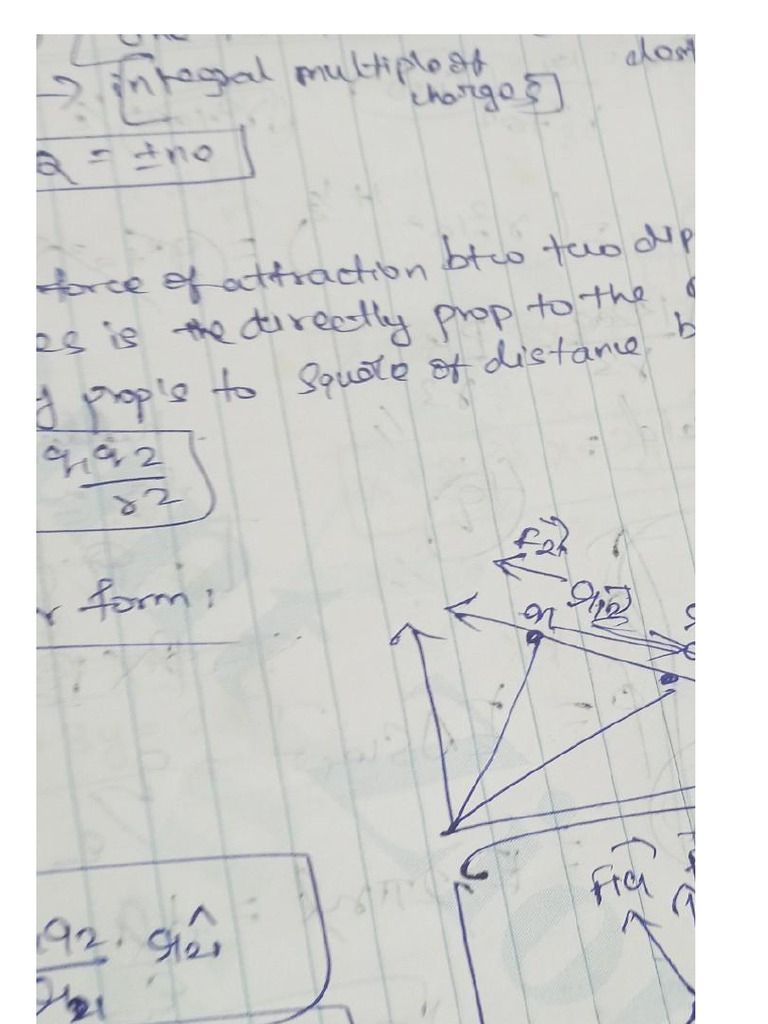 → [integral multiple of
charges]
Q = ±ne
force of attraction btw two dip
es is the directly prop to the
y prop's to square of distance b
q1 q2
r2
r form:
F21
q1
r12
q2 . r̂21
r21